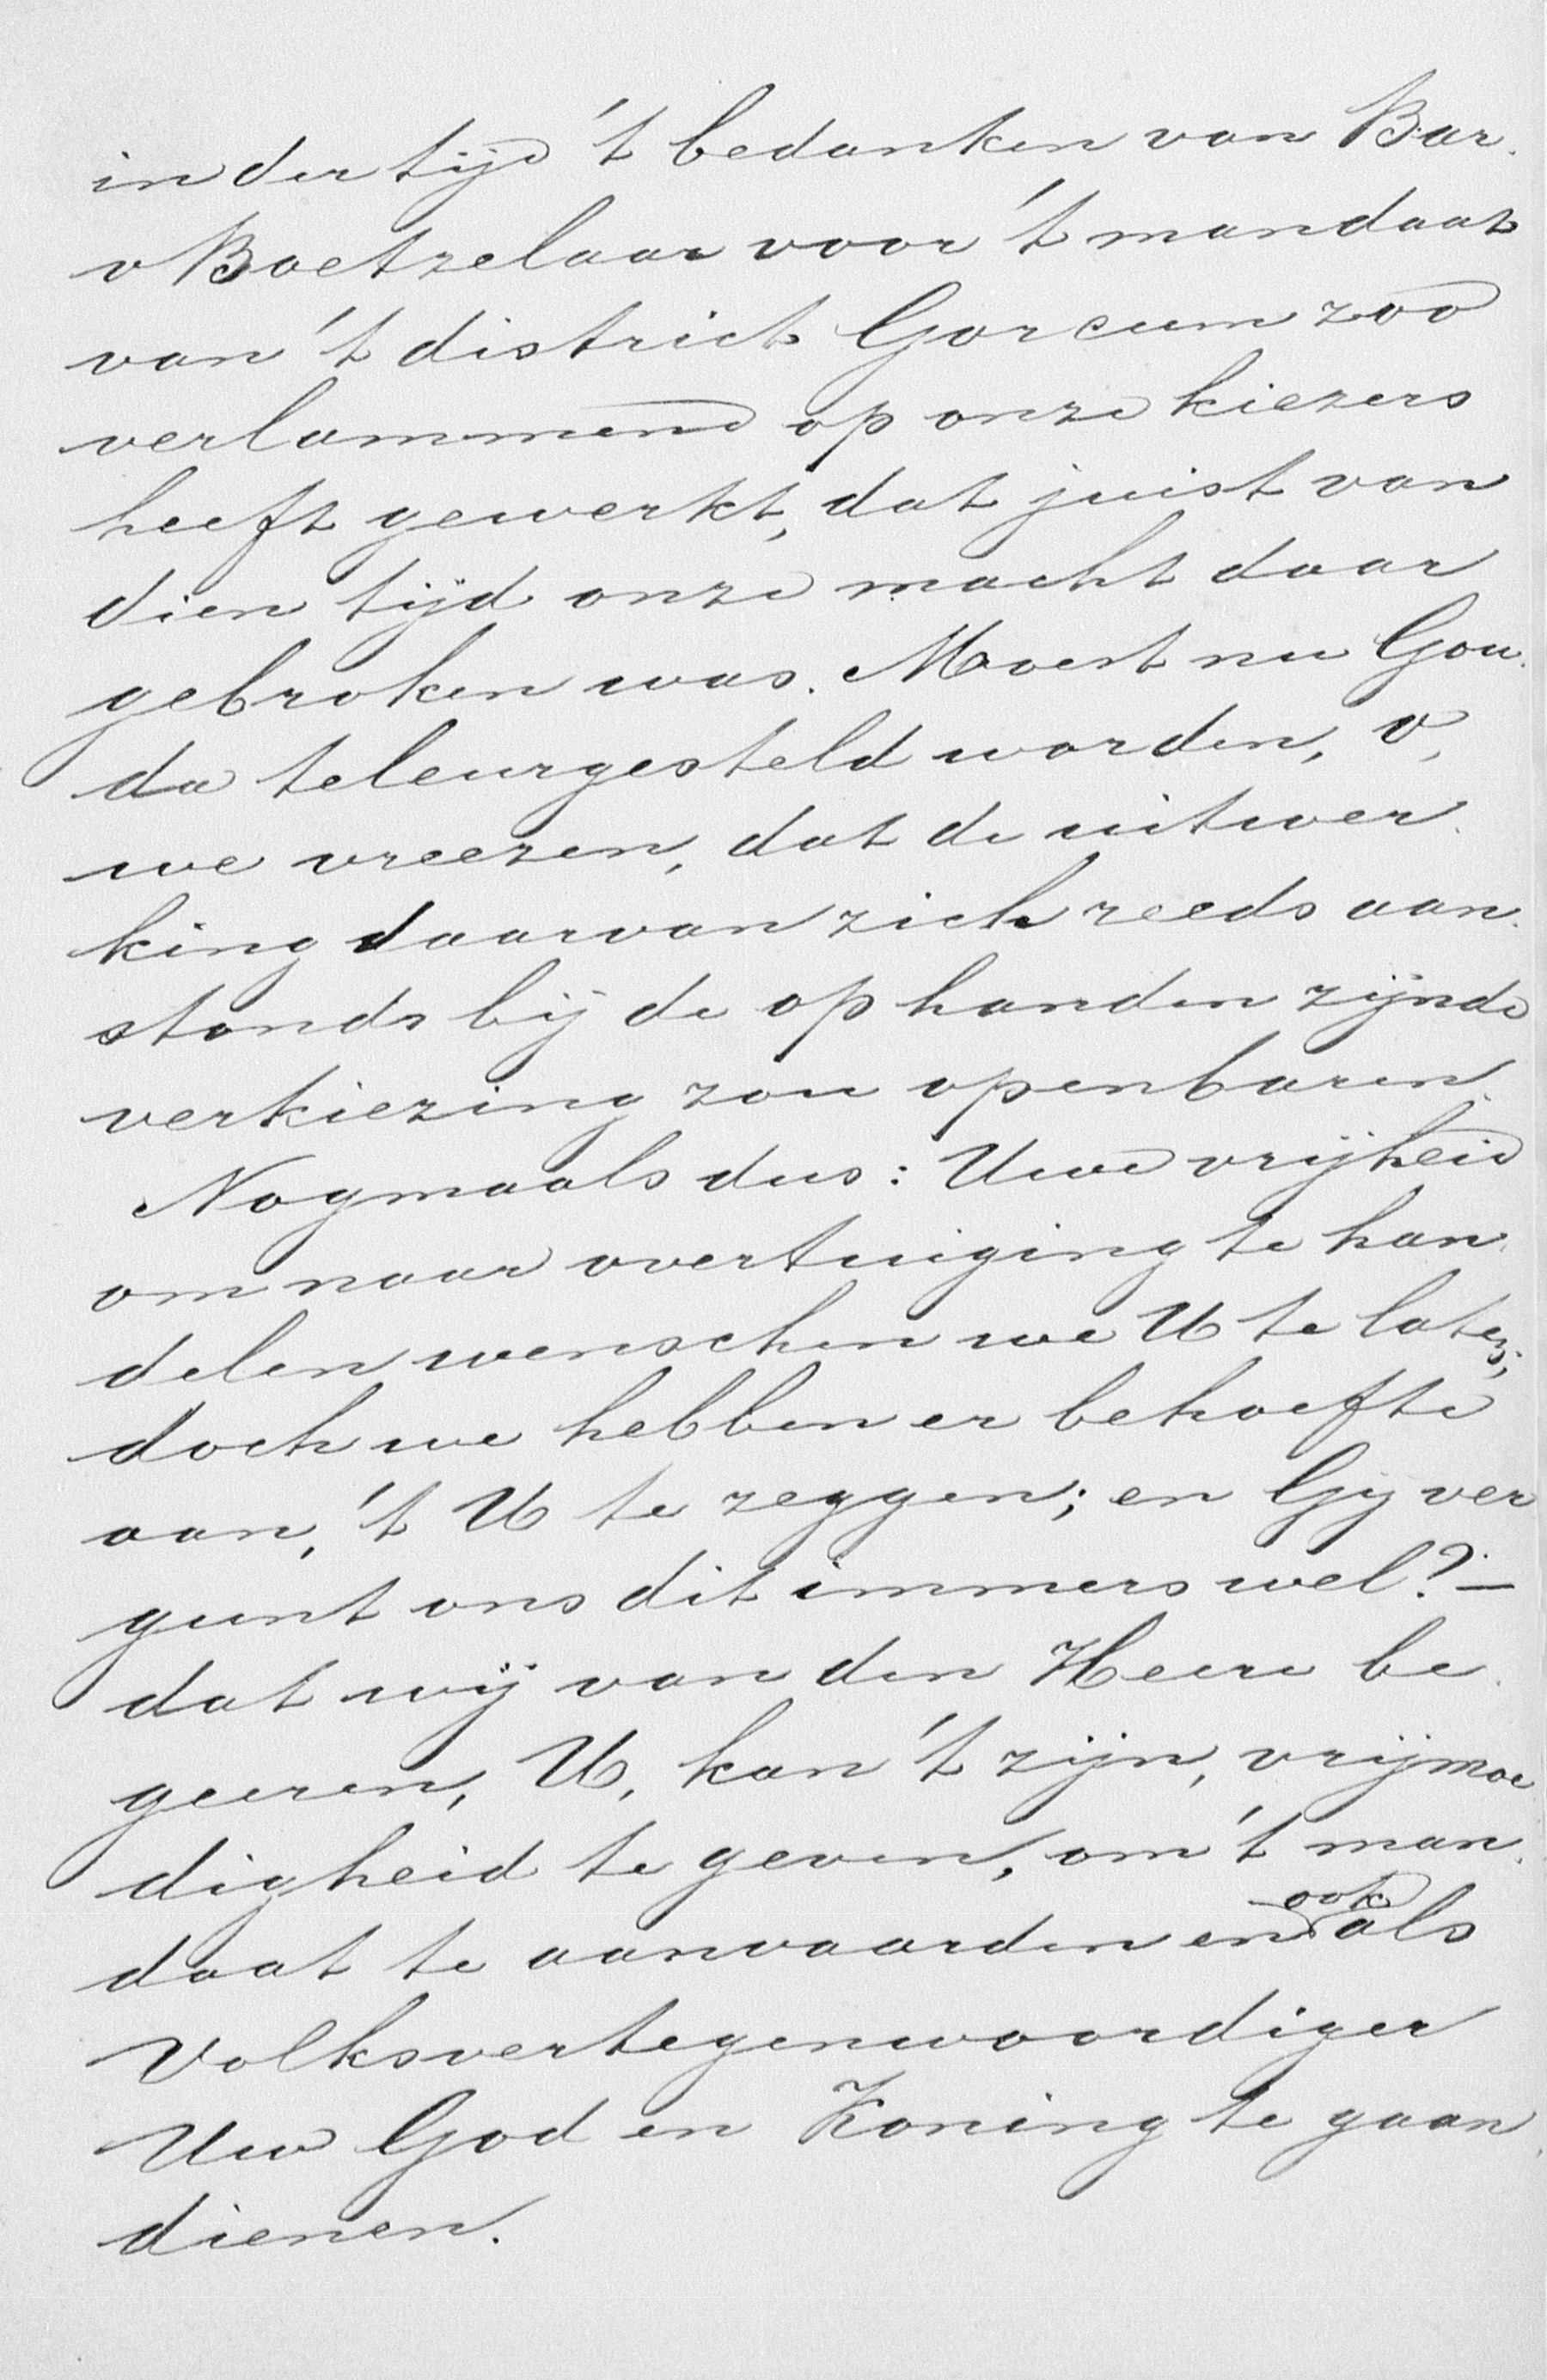 in der tijd 't bedanken van Bar.
v Boetzelaar voor 't mandaat
van 't district Gorcum zoo
verlammend op onze kiezers
heeft gewerkt, dat juist van
dien tijd onze macht daar
gebroken was. Moest nu Gou-
da teleurgesteld worden, o,
we vreezen, dat de uitwer-
king daarvan zich reeds aan-
stonds bij de op handen zijnde
verkiezing zou openbaren.
Nogmaals dus: Uwe vrijheid
om naar overtuiging te han-
delen wenschen we U te laten;
doch we hebben er behoefte
aan, 't U te zeggen; en Gy ver
gunt ons dit immers wel? —
dat wij van den Heere be-
geeren, U, kan 't zijn, vrijmoe
digheid te geven, om 't man-
daat te aanvaarden en ook als
Volksvertegenwoordiger
Uw God en Koning te gaan
dienen.